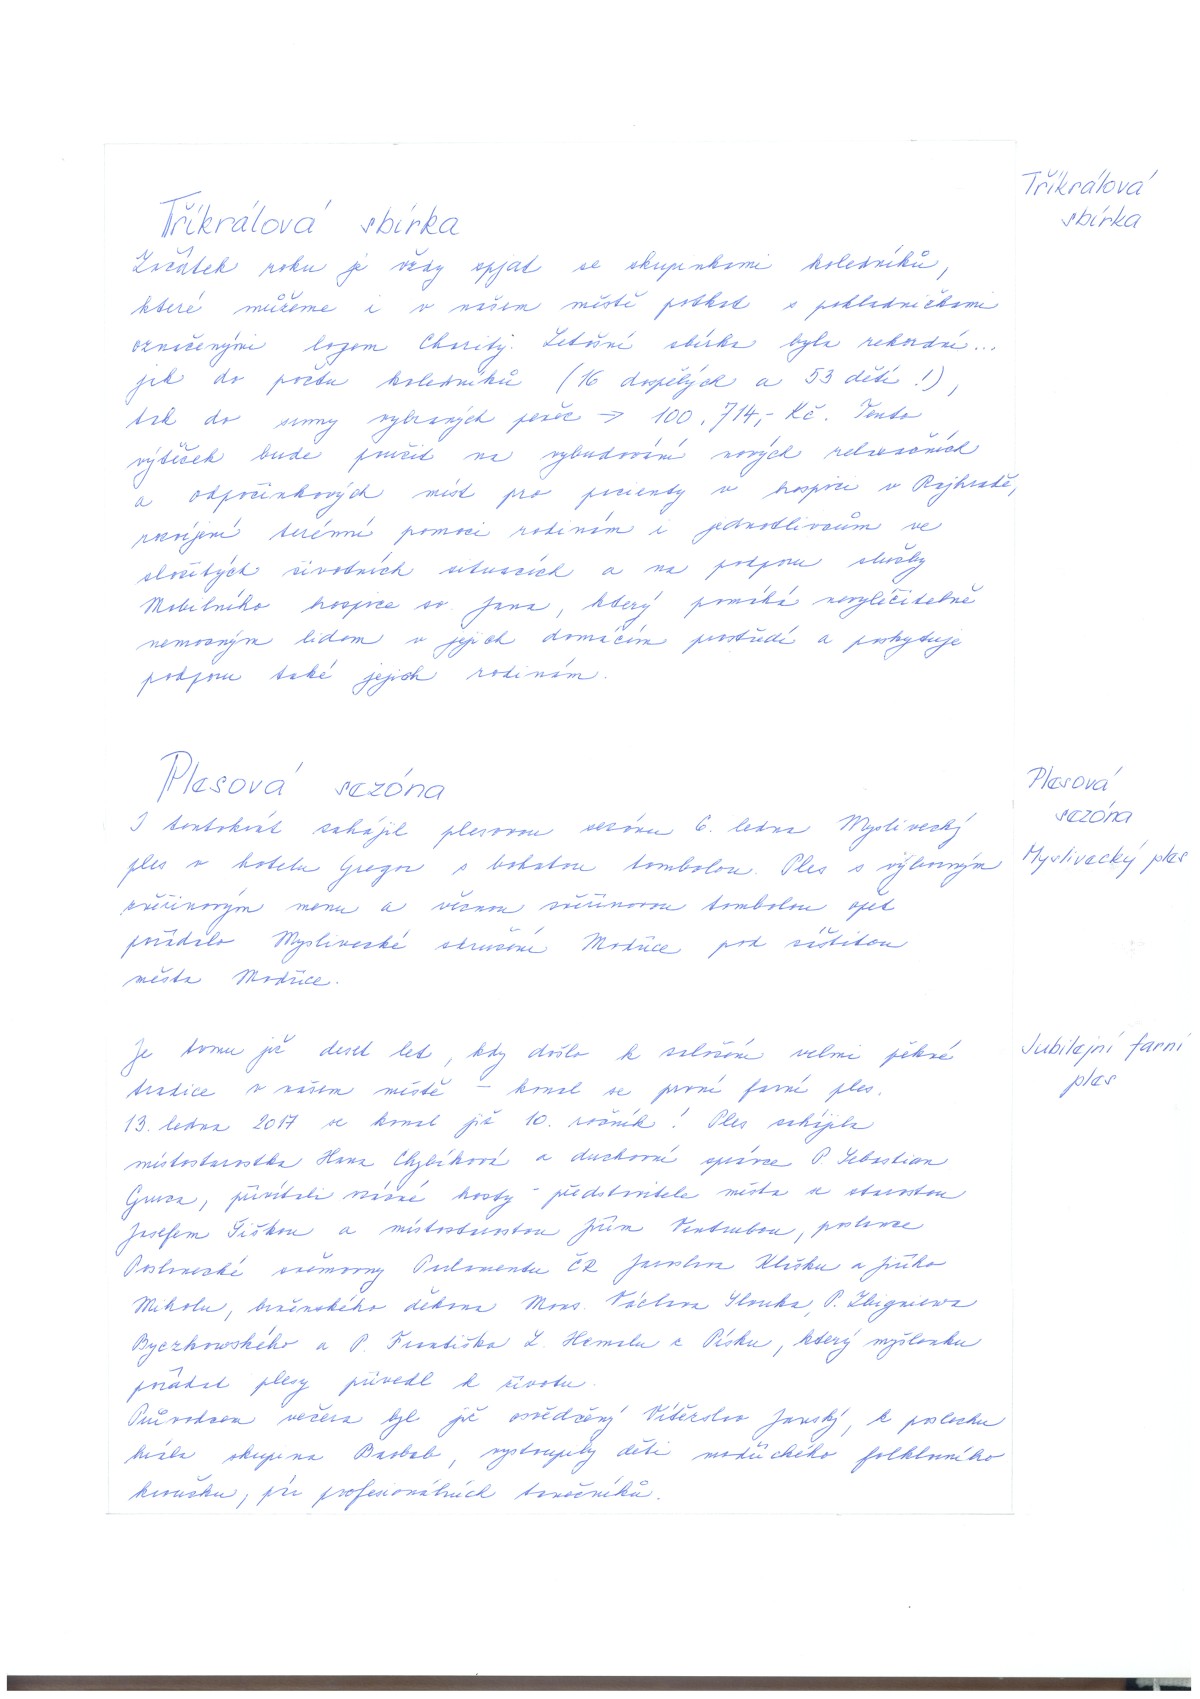 Tříkrálová sbírka
Tříkrálová
sbírka
Začátek roku je vždy spjat se skupinkami koledníků,
které můžeme i v našem městě potkat s pokladničkami
označenými logem Charity. Letošní sbírka byla rekordní...
jak do počtu koledníků (16 dospělých a 53 dětí!),
tak do sumy vybraných peněz → 100.714,- Kč. Tento
výtěžek bude použit na vybudování nových relaxačních
a odpočinkových míst pro pacienty v hospici v Rajhradě,
rozvíjení terénní pomoci rodinám i jednotlivcům ve
složitých životních situacích a na podporu služby
Mobilního hospice sv. Jana, který pomáhá nevyléčitelně
nemocným lidem v jejich domácím prostředí a poskytuje
podporu také jejich rodinám.
Plesová sezóna
Plesová
sezóna
I tentokrát zahájil plesovou sezónu 6. ledna Myslivecký
ples v hotelu Gregor s bohatou tombolou. Ples s výborným
Myslivecký ples
zvěřinovým menu a věcnou zvěřinovou tombolou opět
pořádalo Myslivecké sdružení Modřice pod záštitou
města Modřice.
Je tomu již deset let, kdy došlo k založení velmi pěkné
Jubilejní farní
ples
tradice v našem městě - konal se první farní ples.
13. ledna 2017 se konal již 10. ročník! Ples zahájila
místostarostka Hana Chybíková a duchovní správce P. Sebastian
Gruca, přivítali vzácné hosty - představitele města se starostou
Josefem Šiškou a místostarostou Jiřím Ventrubou, poslance
Poslanecké sněmovny Parlamentu ČR Jaroslava Klašku a Jiřího
Miholu, brněnského děkana Mons. Václava Slouka, P. Zbigniewa
Byczkowského a P. Františka L. Hemalu z Písku, který myšlenku
pořádat plesy přivedl k životu.
Průvodcem večera byl již osvědčený Vítězslav Janský, k poslechu
hrála skupina Baobab, vystoupily děti modřického folklorního
kroužku, pár profesionálních tanečníků.